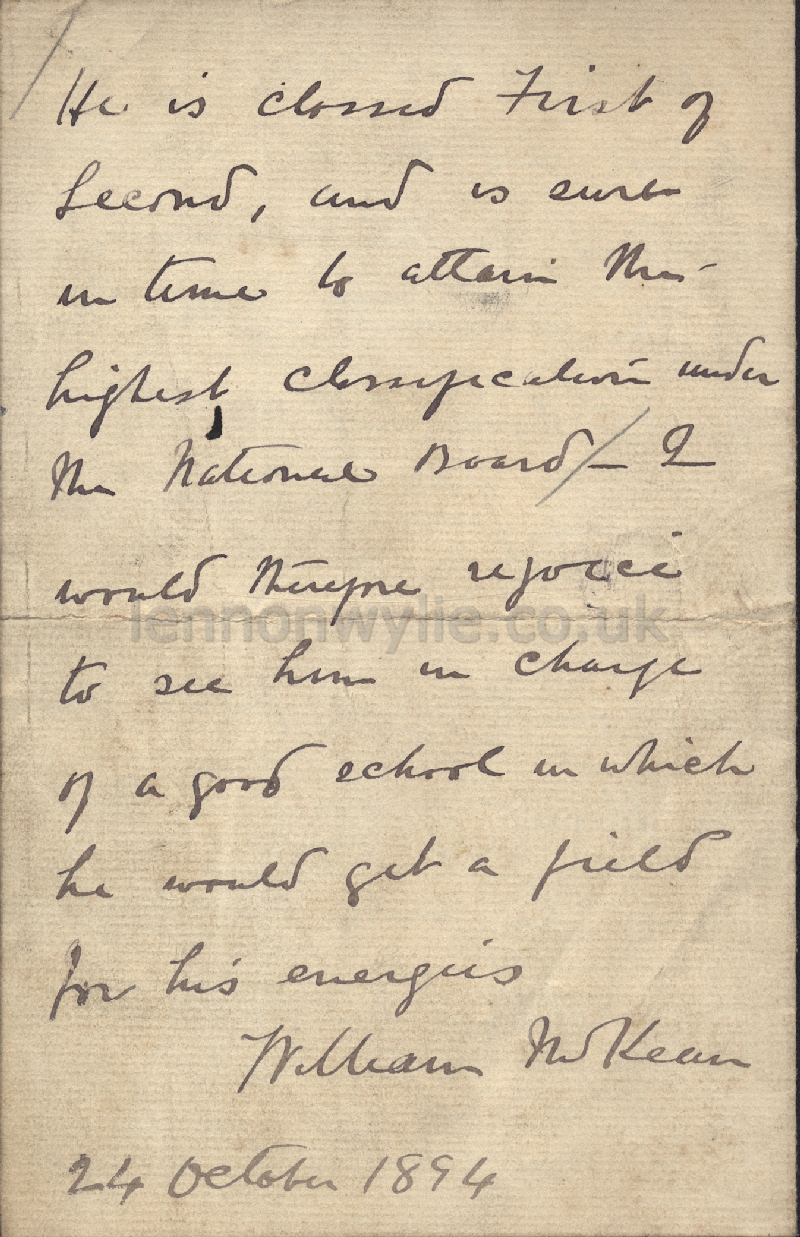 He is classed First of
Second, and is sure
in time to attain the
highest classification under
the National Board/ – I
would therefore rejoice
lennonwylie.co.uk
to see him in charge
of a good school in which
he would get a field
for his energies
William McKean
24 October 1894